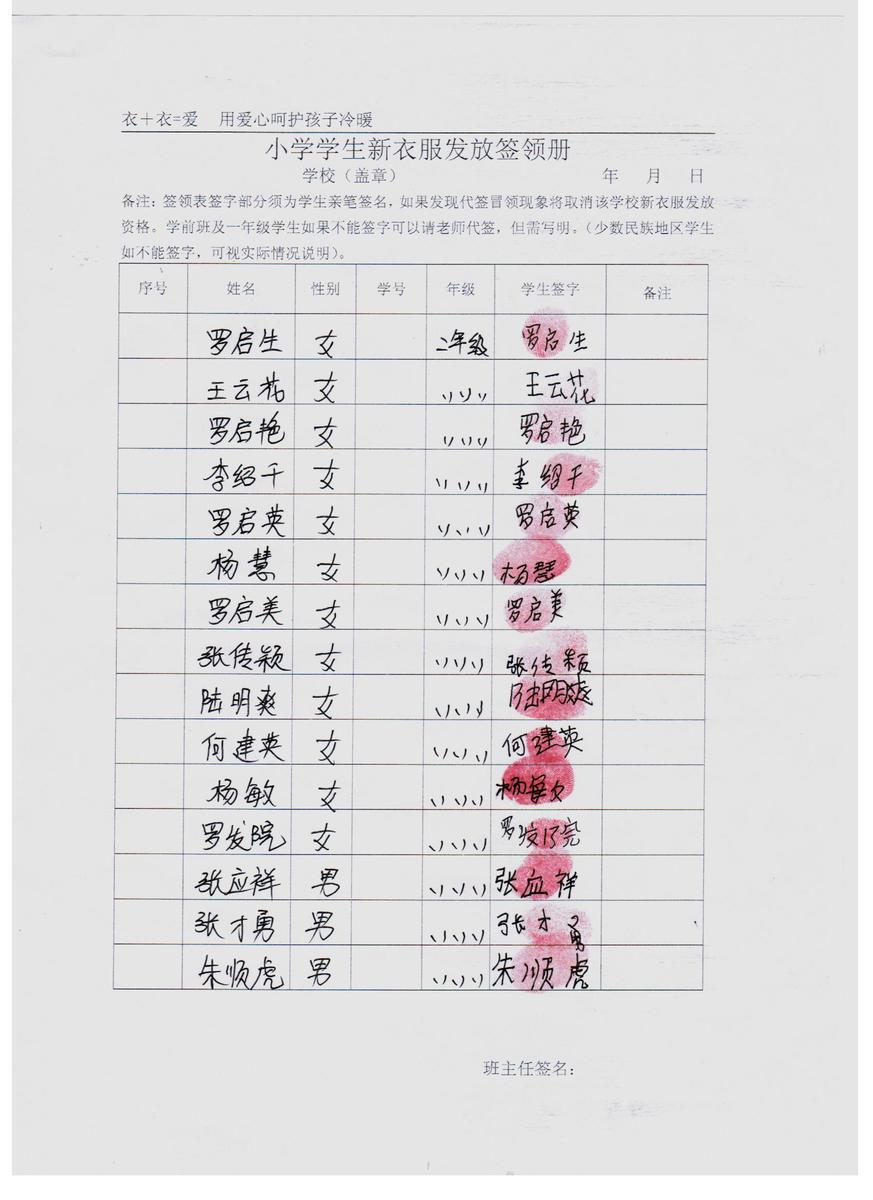 衣+衣=爱 用爱心呵护孩子冷暖
小学学生新衣服发放签领册
学校（盖章） 年 月 日
备注：签领表签字部分须为学生亲笔签名，如果发现代签冒领现象将取消该学校新衣服发放
资格。学前班及一年级学生如果不能签字可以请老师代签，但需写明。（少数民族地区学生
如不能签字，可视实际情况说明）。
序号 姓名 性别 学号 年级 学生签字 备注
罗启生 女 二年级 罗启生
王云花 女 〃 〃 王云花
罗启艳 女 〃 〃 罗启艳
李绍千 女 〃 〃 李绍千
罗启英 女 〃 〃 罗启英
杨慧 女 〃 〃 杨慧
罗启美 女 〃 〃 罗启美
张传颖 女 〃 〃 张传颖
陆明爽 女 〃 〃 陆明爽
何建英 女 〃 〃 何建英
杨敏 女 〃 〃 杨敏
罗发院 女 〃 〃 罗发院
张应祥 男 〃 〃 张血祥
张才勇 男 〃 〃 张才勇
朱顺虎 男 〃 〃 朱顺虎
班主任签名：